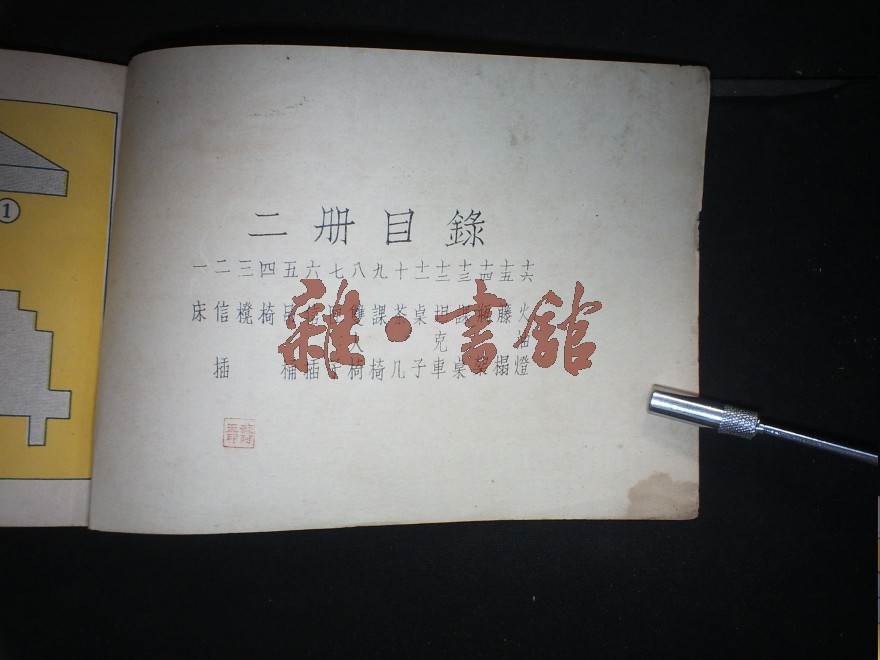 二册目錄
一 床
二 信插
三 櫈
四 椅
五 桶
六 插
七
八 雙人椅
九 課椅
十 茶几
十一 桌子
十二 坦克車
十三 課桌
十四
十五 藤榻
十六 火油燈
雜·書館
①